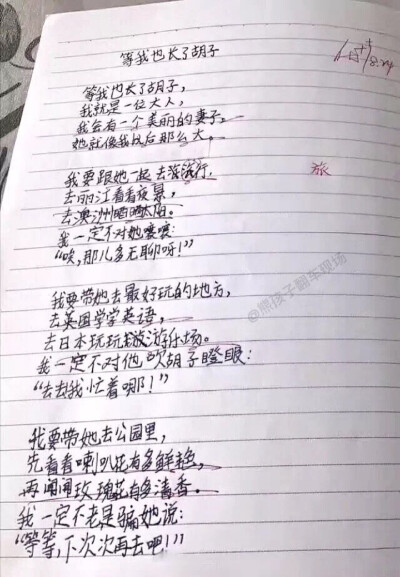 等我也长了胡子
等我也长了胡子，
我就是一位大人，
我会有一个美丽的妻子。
她就像我以后那么大。
我要跟她一起去旅流行，
旅
去丽江看看夜景，
去澳洲晒晒太阳。
我一定不对她嚷嚷：
“唉，那儿多无聊呀！”
我要带她去最好玩的地方，
去英国学学英语，
去日本玩玩游乐场。
我一定不对他吹胡子瞪眼：
“去去我忙着哪！”
我要带她去公园里，
先看看喇叭花有多鲜艳，
再闻闻玫瑰花有多清香。
我一定不老是骗她说：
“等等，下次次再去吧！”
@熊孩子翻车现场